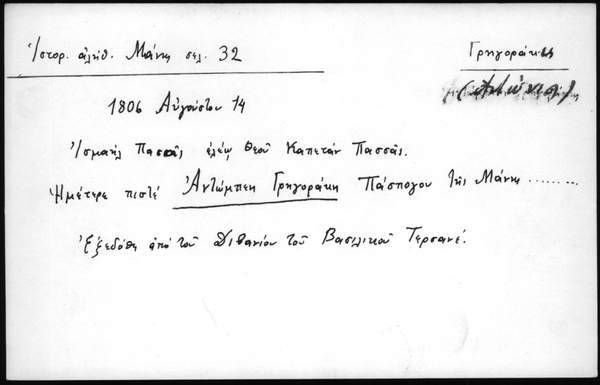 Ἱστορ. ἀλήθ. Μάνης σελ. 32
Γρηγοράκης
(Ἀντώνιος)
1806 Αὐγούστου 14
Ἰσμαήλ Πασσᾶς ἐλέῳ Θεοῦ Καπετάν Πασσᾶς.
Ἡμέτερε πιστέ Ἀντώμπεη Γρηγοράκη Πάσπογου τῆς Μάνης ........
Ἐξεδόθη ἀπό τοῦ Διβανίου τοῦ Βασιλικοῦ Τερσανέ.